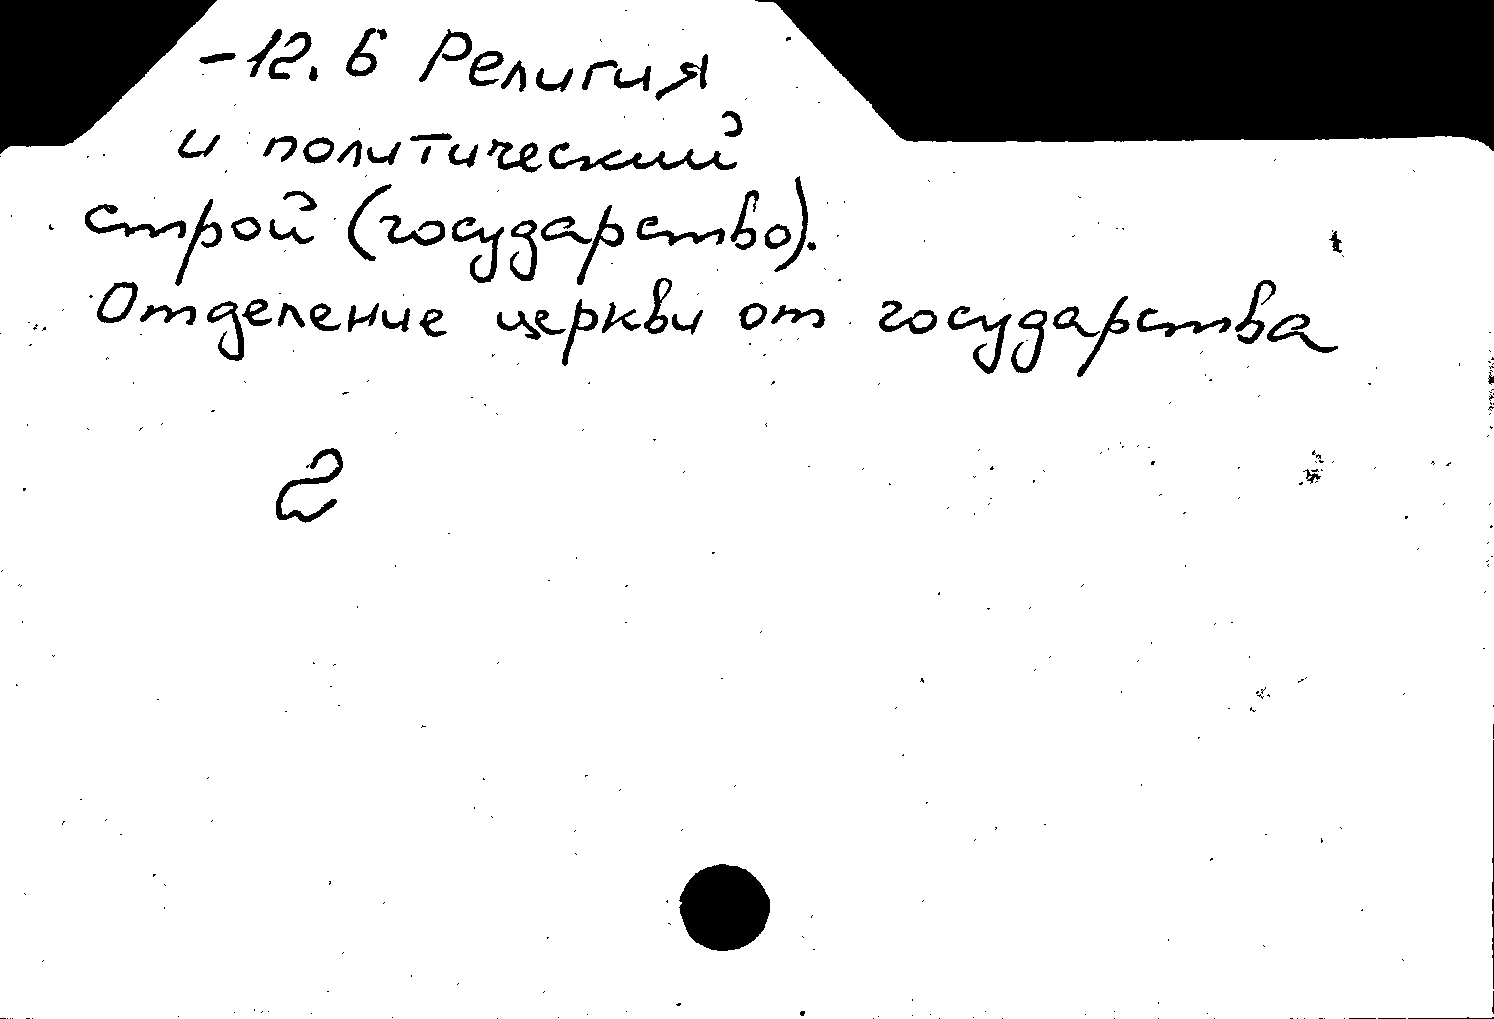 -12.6 Религия
и политический
строй (государство).
Отделение церкви от государства